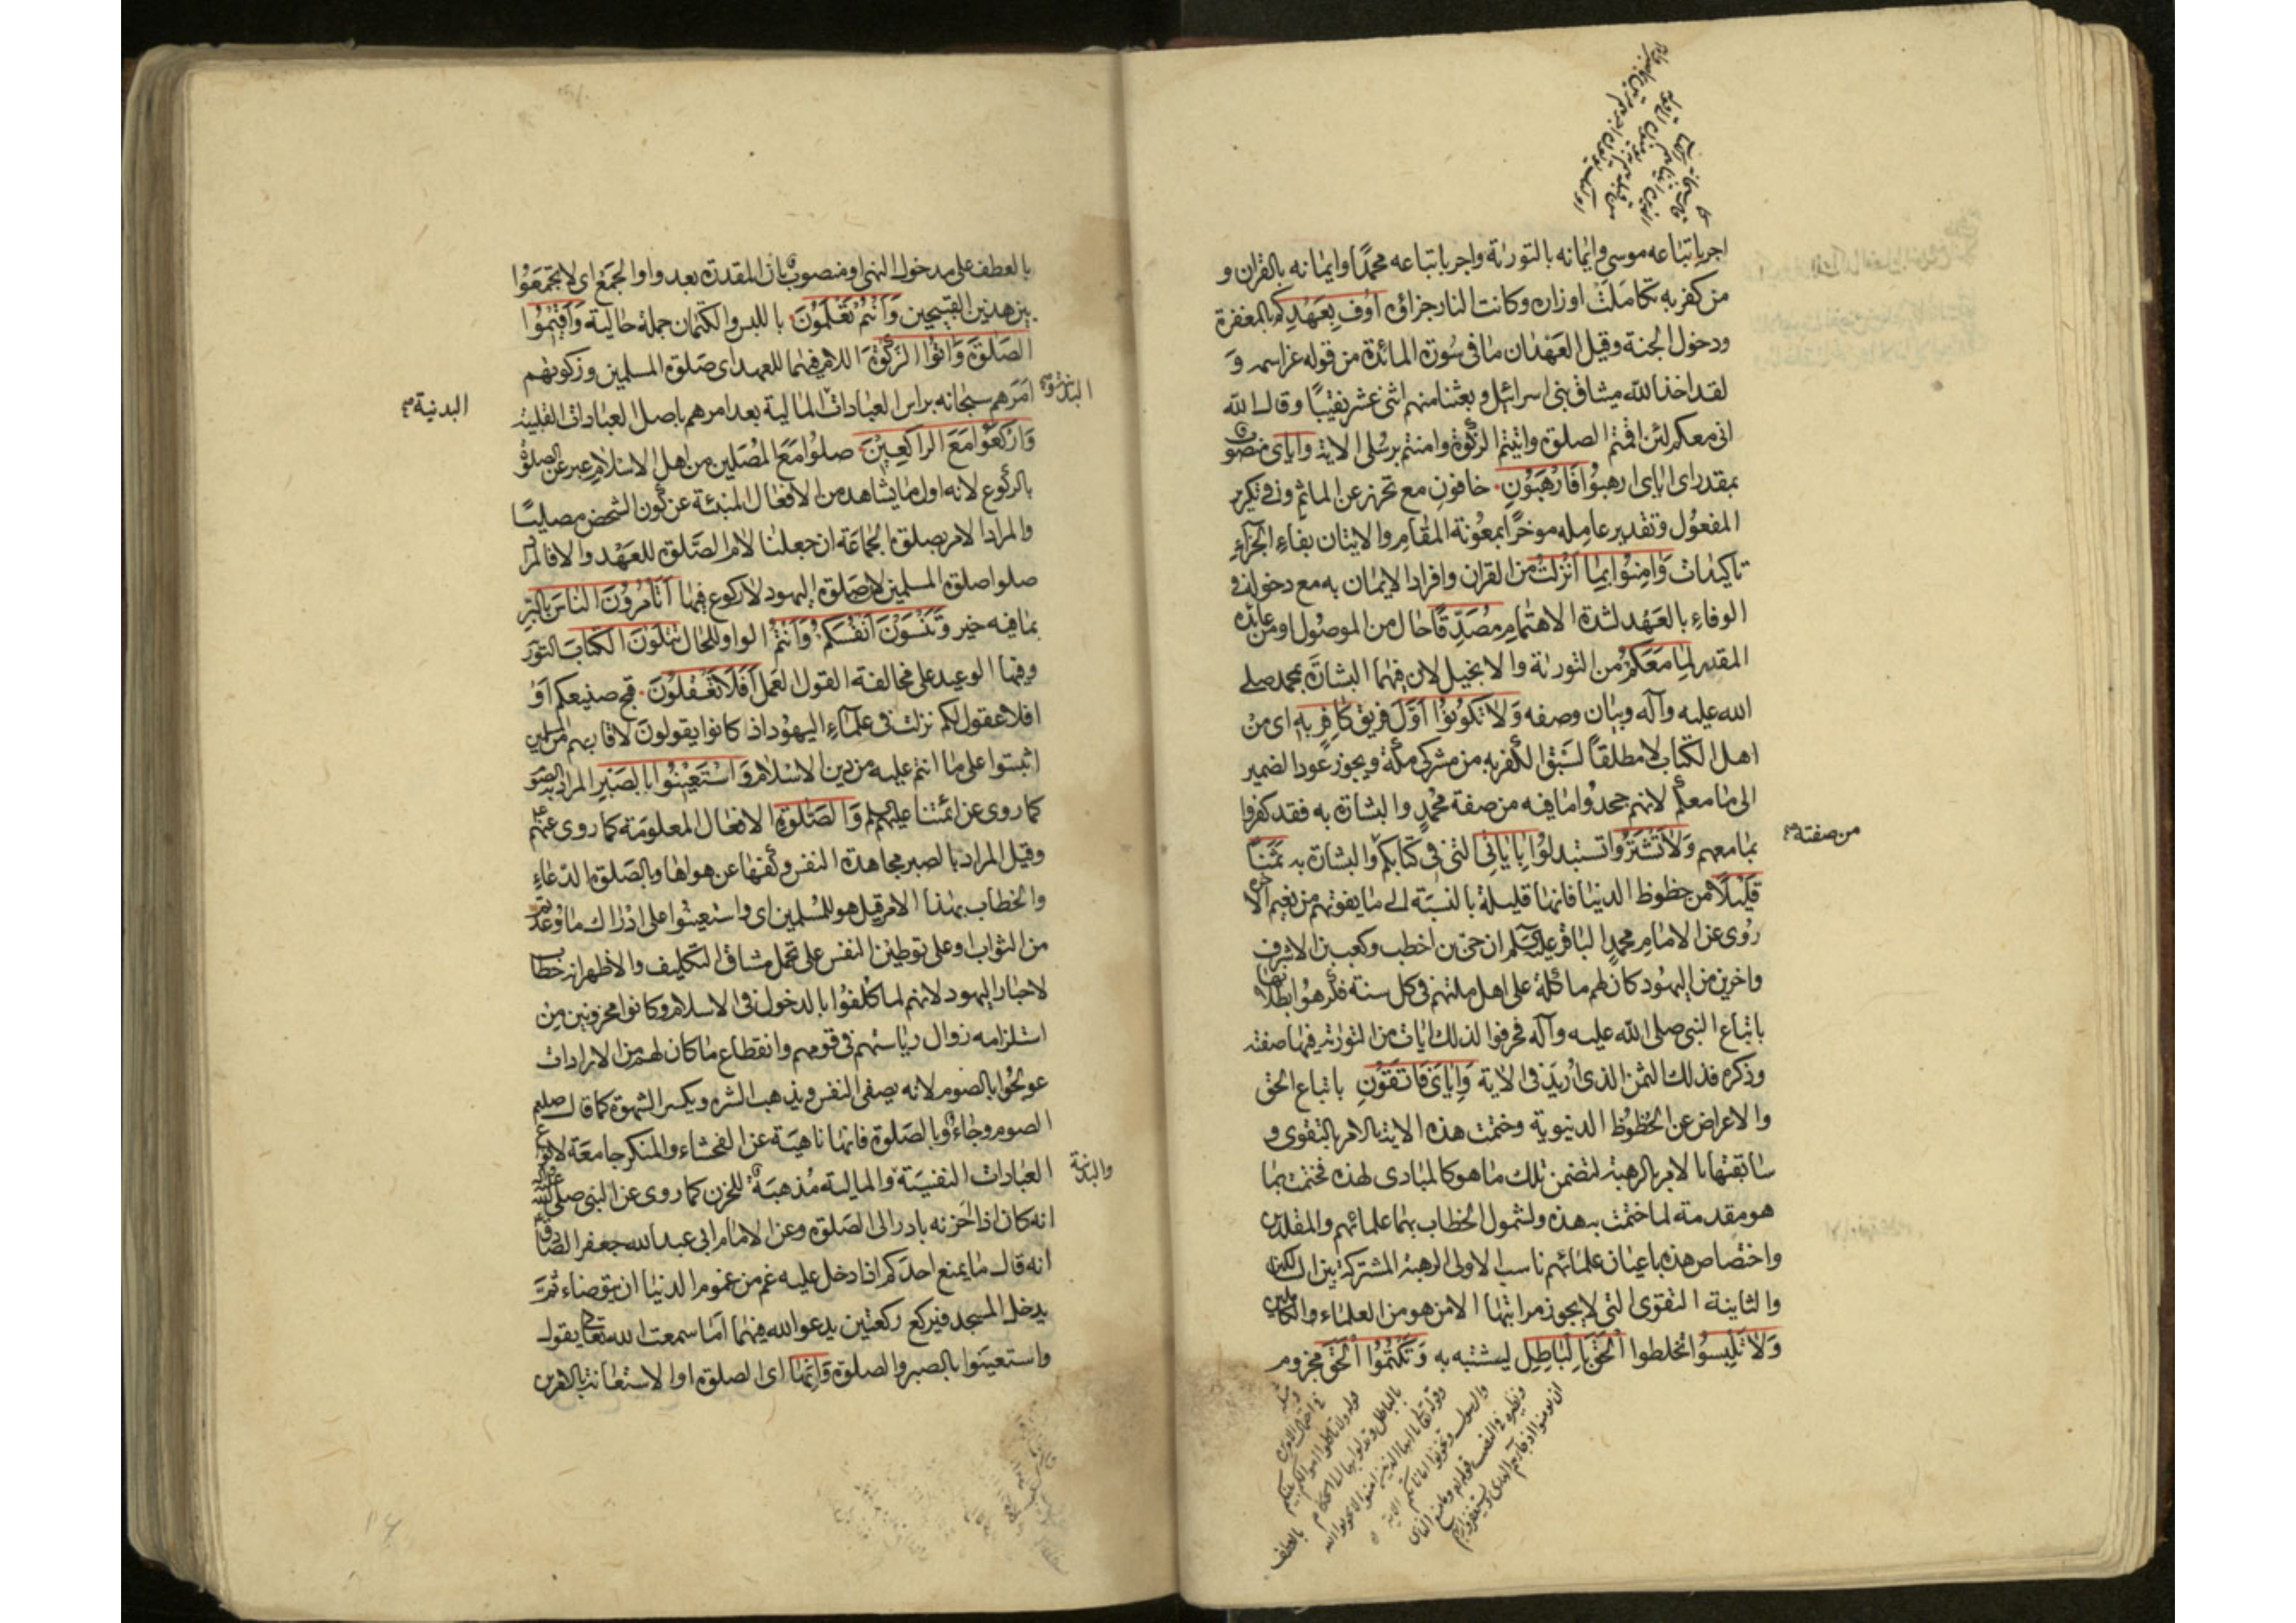 اجر باتباعه موسى وايمانه بالتورية واجر باتباعه محمدا وايمانه بالقران و
من كفر به تكاملت اوزاره وكانت النار جزاؤه اوف بعهدكم بالمغفرة
ودخول الجنة وقيل العهدان ما فى سورة المائدة من قوله عز اسمه و
لقد اخذ الله ميثاق بنى اسرائيل وبعثنا منهم اثنى عشر نقيبا وقال الله
انى معكم لئن اقمتم الصلوة واتيتم الزكوة وامنتم برسلى الاية واياى منصوب
بمقدر اى اياى ارهبوا فارهبون خافون مع تحرز عن الماثم وفى تكرير
المفعول وتقدير عامله موخرا بمعونة المقام والايتان بفاء الجزاء
تاكيدات وامنوا بما انزلت من القران وافراد الايمان به مع دخوله فى
الوفاء بالعهد لشدة الاهتمام مصدقا حال من الموصول او من عائده
المقدر لما معكم من التورية والانجيل لان فيهما البشارة بمحمد صلى
الله عليه وآله وبيان وصفه ولا تكونوا اول فريق كافر به اى من
اهل الكتاب لا مطلقا لسبق الكفر به من مشركى مكة ويجوز عود الضمير
الى ما معكم لانهم جحدوا ما فيه من صفة محمد والبشارة به فقد كفروا
بما معهم ولا تشتروا تستبدلوا باياتى التى فى كتابكم والبشارة به ثمنا
من صفته صح
قليلا من حظوظ الدنيا فانها قليلة بالنسبة الى ما يفوتهم من نعيم الاخرة
روى عن الامام محمد الباقر عليه السلم ان حيى بن اخطب وكعب بن الاشرف
واخرين من اليهود كان لهم ماكلة على اهل ملتهم فى كل سنة فكرهوا بطلانها
باتباع النبى صلى الله عليه وآله فحرفوا لذلك ايات من التورية فيها صفته
وذكره فذلك الثمن الذى اريد فى الاية واياى فاتقون باتباع الحق
والاعراض عن الحظوظ الدنيوية وختمت هذه الاية بالامر بالتقوى و
سابقتها بالامر بالرهبة لتضمن تلك ما هو كالمبادى لهذه فختمت بما
هو مقدمة لما ختمت به هذه ولشمول الخطاب بها علمائهم والمقلدين
واختصاص هذه باعيان علمائهم ناسب الاولى الرهبة المشتركة بين الكل
والثانية التقوى التى لا يجوز مراتبها الا من هو من العلماء والكاملين
ولا تلبسوا تخلطوا الحق بالباطل ليشتبه به وتكتموا الحق مجزوم
بالعطف
بالعطف على مدخول النهى او منصوب بان المقدرة بعد واو الجمع اى لا تجمعوا
بين هذين القبيحين وانتم تعلمون باللبس والكتمان جملة حالية واقيموا
الصلوة واتوا الزكوة اللام فيهما للعهد اى صلوة المسلمين وزكوتهم
امرهم سبحانه براس العبادات المالية بعد امرهم باصل العبادات القلبية
البدنية صح
واركعوا مع الراكعين صلوا مع المصلين من اهل الاسلام عبر عن الصلوة
بالركوع لانه اول ما يشاهد من الافعال المنبئة عن كون الشخص مصليا
والمراد الامر بصلوة الجماعة ان جعلنا لام الصلوة للعهد والا فالمراد
صلوا صلوة المسلمين لان صلوة اليهود لا ركوع فيها اتامرون الناس بالبر
بما فيه خير وتنسون انفسكم وانتم الواو للحال تتلون الكتاب التورية
وفيها الوعيد على مخالفة القول العمل افلا تعقلون قبح صنيعكم او
افلا عقول لكم نزلت فى علماء اليهود اذ كانوا يقولون لاقاربهم من المسلمين
اثبتوا على ما انتم عليه من دين الاسلام واستعينوا بالصبر المراد به الصوم
كما روى عن ائمتنا عليهم السلم والصلوة الافعال المعلومة كما روى عنهم
وقيل المراد بالصبر مجاهدة النفس وكفها عن هواها وبالصلوة الدعاء
والخطاب بهذا الامر قيل هو للمسلمين اى واستعينوا على ادراك ما وعدتم
من الثواب وعلى توطين النفس على تحمل مشاق التكليف والاظهر انه خطاب
لاحبار اليهود لانهم لما كلفوا بالدخول فى الاسلام وكانوا محزونين من
استلزامه زوال رياستهم فى قومهم وانقطاع ما كان لهم من الايرادات
عولجوا بالصوم لانه يصفى النفس ويذهب الشره ويكسر الشهوة كما قال صلعم
الصوم وجاء وبالصلوة فانها ناهية عن الفحشاء والمنكر جامعة لانواع
العبادات النفسية والمالية مذهبة للحزن كما روى عن النبى صلى الله عليه وآله
والبدنية
انه كان اذا احزنه بادر الى الصلوة وعن الامام ابى عبد الله جعفر الصادق
انه قال ما يمنع احدكم اذا دخل عليه غم من غموم الدنيا ان يتوضاء ثم
يدخل المسجد فيركع ركعتين يدعو الله فيهما اما سمعت الله تعالى يقول
واستعينوا بالصبر والصلوة وانها اى الصلوة او الاستعانة بالامرين